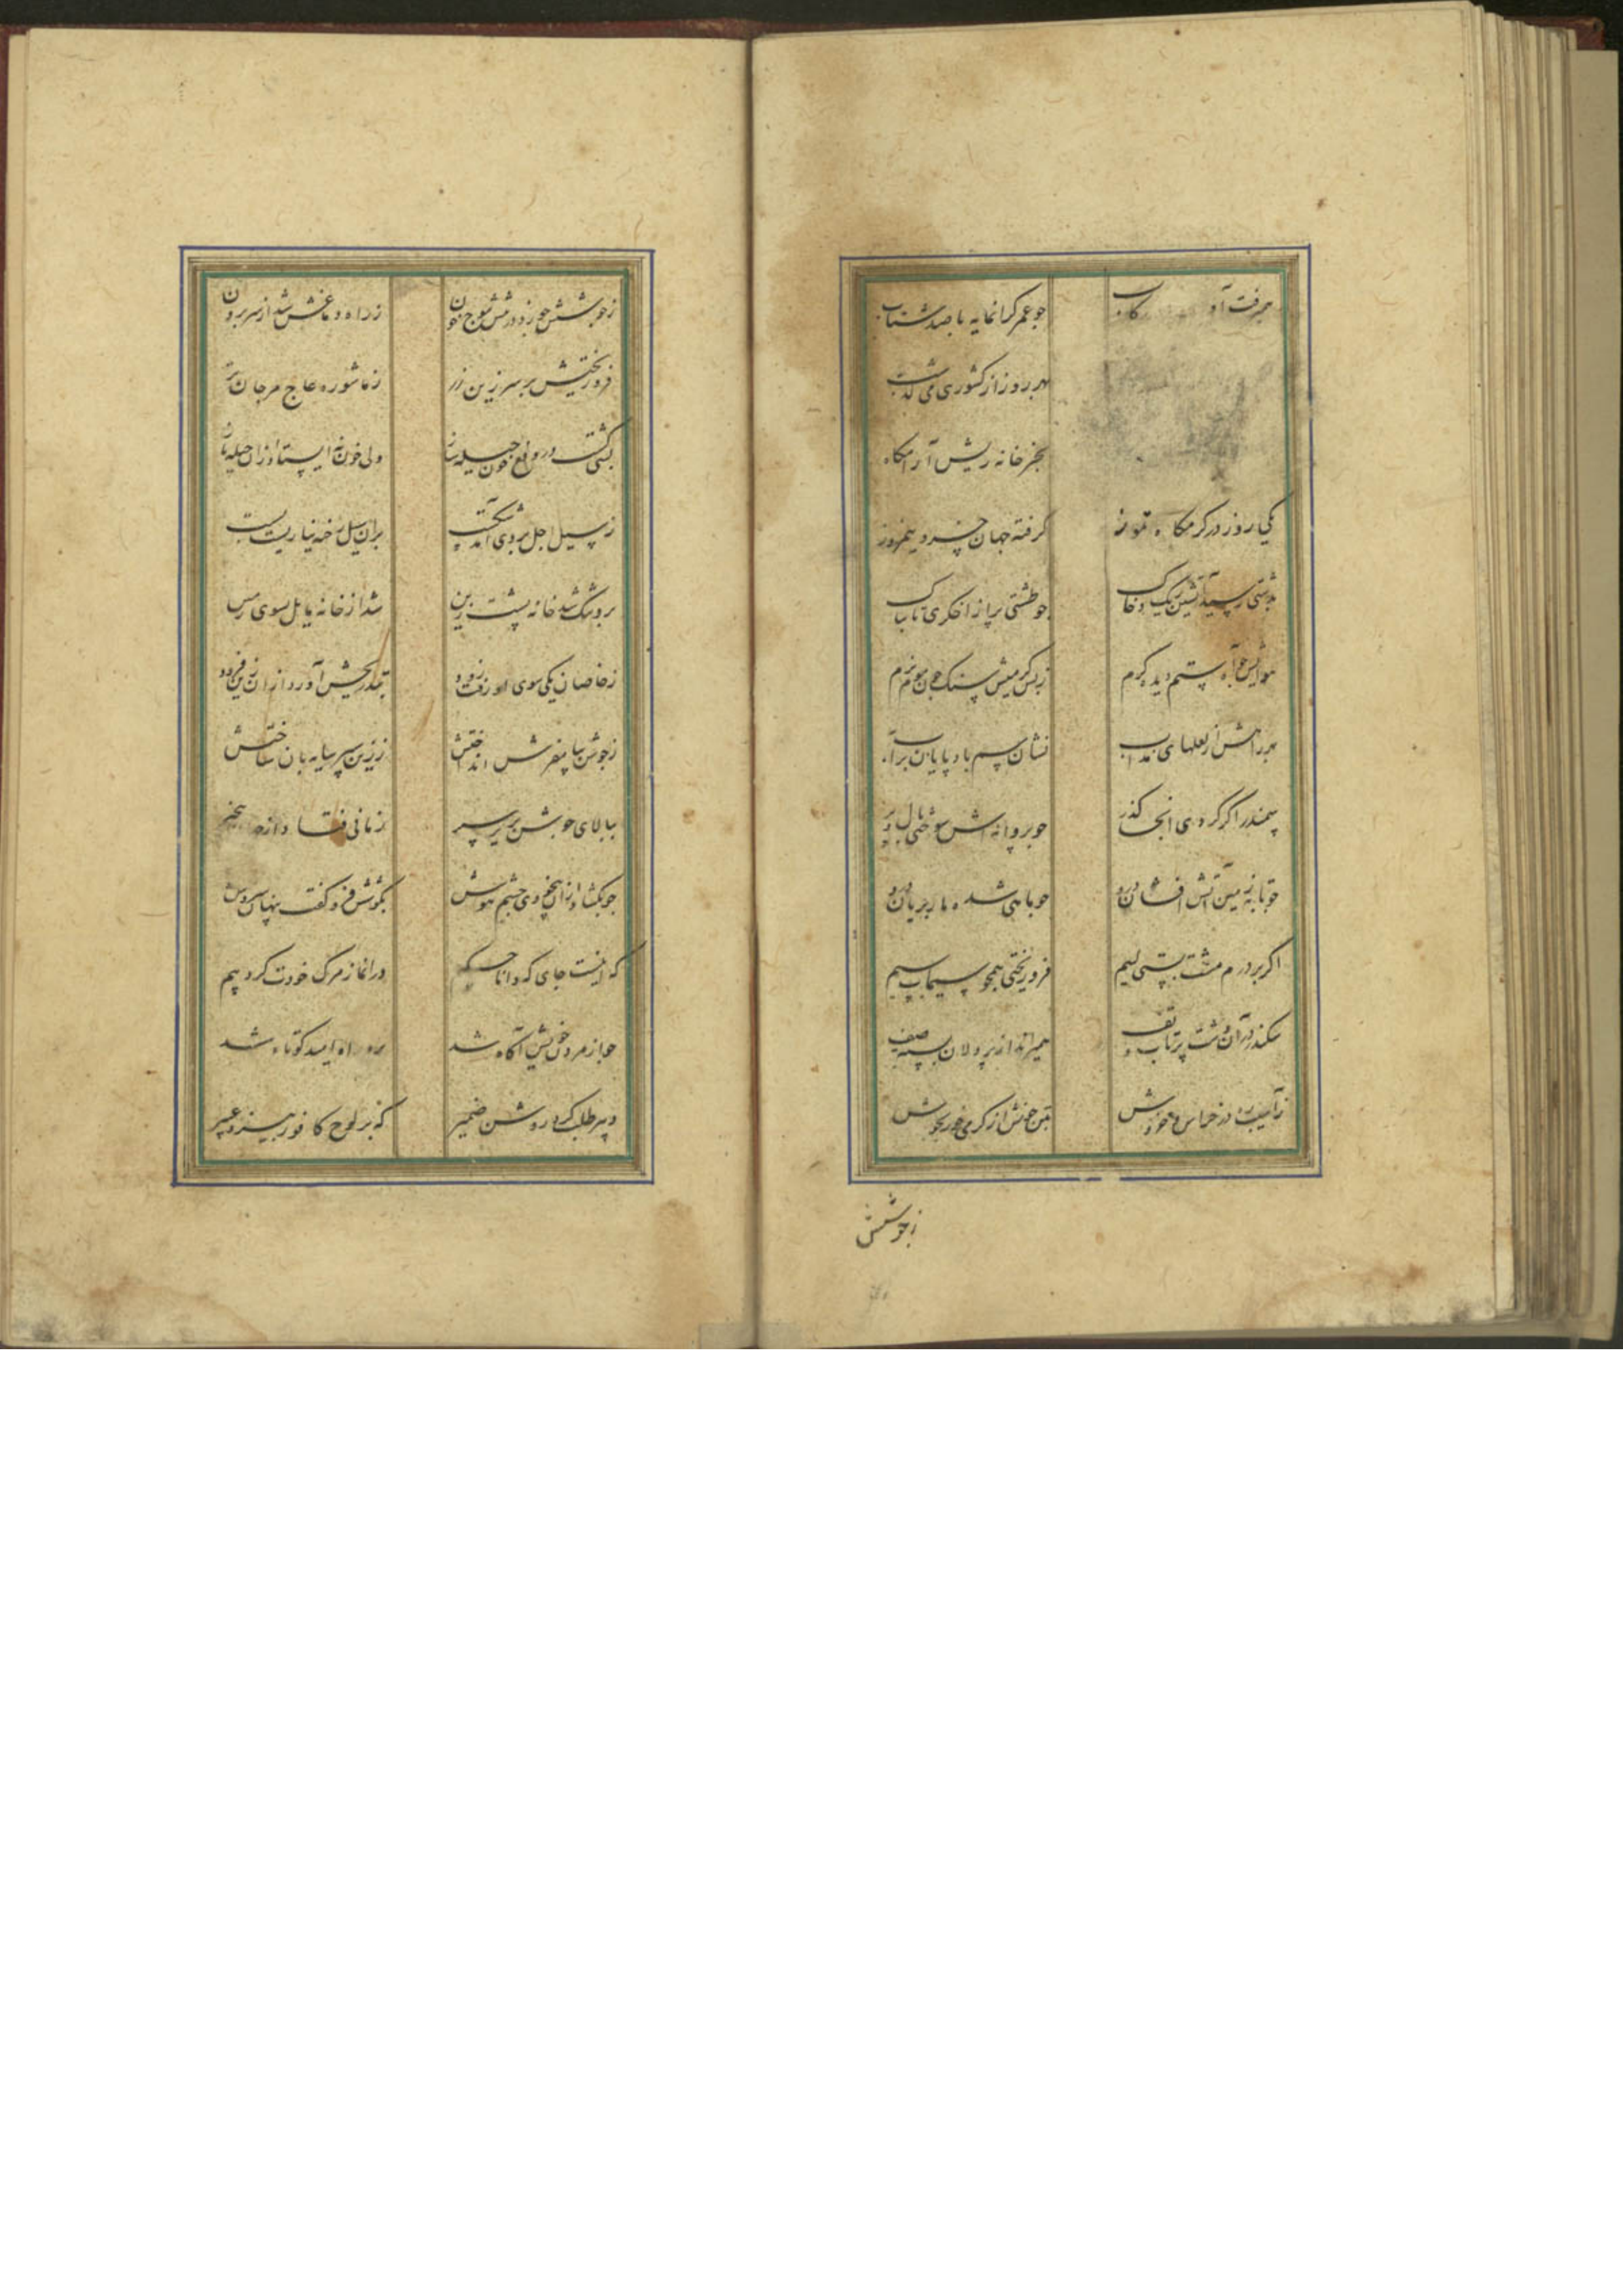 همی‌رفت آو کاب چو عمر گرانمایه با صد شتاب
بهر روز از کشوری می گذشت
بجز خانه زینش آرامگاه
یکی روز در گرمگاه تموز گرفته جهان خسرو نیمروز
بدشتی رسید آتشین ریگ و خاک چو طشتی پر از اخگری تابناک
هوایش چو آه ستم دیده گرم ز بس گرمیش سنگ چون موم نرم
براهش از نعلهای مذاب نشان سم بادپایان بر آب
سمندر اگر کردی آنجا گذر چو پروانه اش سوختی بال و پر
چو تابه زمین آتش افشان درو چو ماهی شده مار بریان درو
اگر بر درم مشت بستی لئیم فرو ریختی همچو سیماب سیم
سکندر در آن دشت پر تاب و تف همیراند از پردلان بسته صف
ز آسیب ره در خراش و خروش بتن خونش از گرمی خور بجوش
ز جوشش
ز جوشش چو زد در تنش موج خون ز راه دماغش شد از سر برون
فرو ریختش بر سر زین زر ز ماشوره عاج مرجان تر
بسی گشت در دفع خون حیله ساز ولی خون نه ایستاد از آن حیله باز
ز سیل اجل بر وی آمد شکست بر آن سیل رخنه نیارست بست
برو تنگ شد خانه پشت زین شد از خانه مایل سوی زمین
ز خاصان یکی سوی او رفت زود بتدریجش آورد از آن زین فرود
ز جوشن بپا مفرش انداختش ز زرین سپر سایه بان ساختش
ببالای جوشن بزیر سپر زمانی فتاد از بیخبر
چو بگشاد از آن بیخودی چشم هوش بگوشش فرو گفت پنهان سروش
که اینست جای که دانا حکیم در آنجا ز مرگ خودت کرد بیم
چو از مردن خویش آگاه شد برو راه امید کوتاه شد
دبیر طلب کرد روشن ضمیر که بر لوح کافور بیزد عبیر